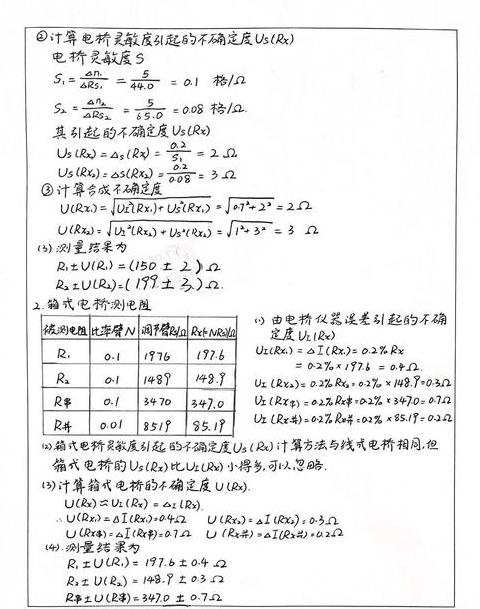 ②计算电桥灵敏度引起的不确定度Us(Rx)
电桥灵敏度S
S₁ = Δn₁/ΔRs₁ = 5/44.0 = 0.1 格/Ω
S₂ = Δn₂/ΔRs₂ = 5/65.0 = 0.08 格/Ω.
其引起的不确定度Us(Rx)
Us(Rx₁) = Δs(Rx₁) = 0.2/S₁ = 2 Ω
Us(Rx₂) = Δs(Rx₂) = 0.2/0.08 = 3 Ω
③计算合成不确定度
U(Rx₁) = √(U_I²(Rx₁) + Us²(Rx₁)) = √(0.7²+2²) = 2 Ω
U(Rx₂) = √(U_I²(Rx₂) + Us²(Rx₂)) = √(1²+3²) = 3 Ω
(3) 测量结果为
R₁ ± U(R₁) = (150 ± 2) Ω
R₂ ± U(R₂) = (199 ± 3) Ω
2. 箱式电桥测电阻
被测电阻 比率臂N 调节臂Rs/Ω Rx(=NRs)/Ω
R₁ 0.1 1976 197.6
R₂ 0.1 1489 148.9
R串 0.1 3470 347.0
R并 0.01 8519 85.19
(1) 由电桥仪器误差引起的不确
定度U_I(Rx)
U_I(Rx₁) = ΔI(Rx₁) = 0.2%Rx
= 0.2%×197.6 = 0.4Ω
U_I(Rx₂) = 0.2%Rx₂ = 0.2%×148.9 = 0.3Ω
U_I(Rx串) = 0.2%Rx串 = 0.2%×347.0 = 0.7Ω
U_I(Rx并) = 0.2%Rx并 = 0.2%×85.19 = 0.2Ω
(2) 箱式电桥灵敏度引起的不确定度Us(Rx)计算方法与线式电桥相同,但
箱式电桥的Us(Rx)比U_I(Rx)小得多,可以忽略.
(3) 计算箱式电桥的不确定度U(Rx).
U(Rx) ≈ U_I(Rx) = ΔI(Rx).
∴ U(Rx₁) = ΔI(Rx₁) = 0.4Ω U(Rx₂) = ΔI(Rx₂) = 0.3Ω
U(Rx串) = ΔI(Rx串) = 0.7Ω U(Rx并) = ΔI(Rx并) = 0.2Ω
(4). 测量结果为
R₁ ± U(R₁) = 197.6 ± 0.4 Ω
R₂ ± U(R₂) = 148.9 ± 0.3 Ω
R串 ± U(R串) = 347.0 ± 0.7 Ω